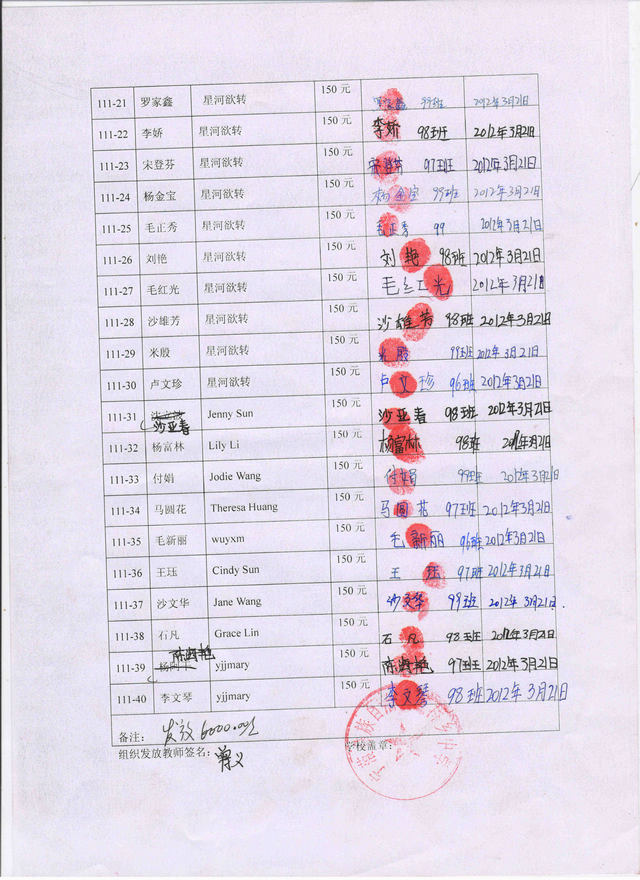 111-21 罗家鑫 星河欲转 150 元 罗家鑫 99班 2012年3月21日
111-22 李娇 星河欲转 150 元 李娇 98班 2012年3月21日
111-23 宋登芬 星河欲转 150 元 宋登芬 97班 2012年3月21日
111-24 杨金宝 星河欲转 150 元 杨金宝 99班 2012年3月21日
111-25 毛正秀 星河欲转 150 元 毛正秀 99 2012年3月21日
111-26 刘艳 星河欲转 150 元 刘艳 98班 2012年3月21日
111-27 毛红光 星河欲转 150 元 毛红光 2012年3月21
111-28 沙雄芳 星河欲转 150 元 沙雄芳 98班 2012年3月21日
111-29 米股 星河欲转 150 元 米股 99班 2012年3月21日
111-30 卢文珍 星河欲转 150 元 卢文珍 96班 2012年3月21日
111-31 沙亚春 Jenny Sun 150 元 沙亚春 98班 2012年3月21日
111-32 杨富林 Lily Li 150 元 杨富林 98班 2012年3月21日
111-33 付娟 Jodie Wang 150 元 付娟 99班 2012年3月21日
111-34 马圆花 Theresa Huang 150 元 马圆花 97班 2012年3月21日
111-35 毛新丽 wuyxm 150 元 毛新丽 96班 2012年3月21日
111-36 王珏 Cindy Sun 150 元 王珏 97班 2012年3月21日
111-37 沙文华 Jane Wang 150 元 沙文华 99班 2012年3月21日.
111-38 石凡 Grace Lin 150 元 石凡 98班 2012年3月21日
111-39 yjjmary 150 元 97班 2012年3月21日
111-40 李文琴 yjjmary 150 元 李文琴 98班 2012年3月21日
备注: 发放6000.00元
组织发放教师签名: 学校盖章: